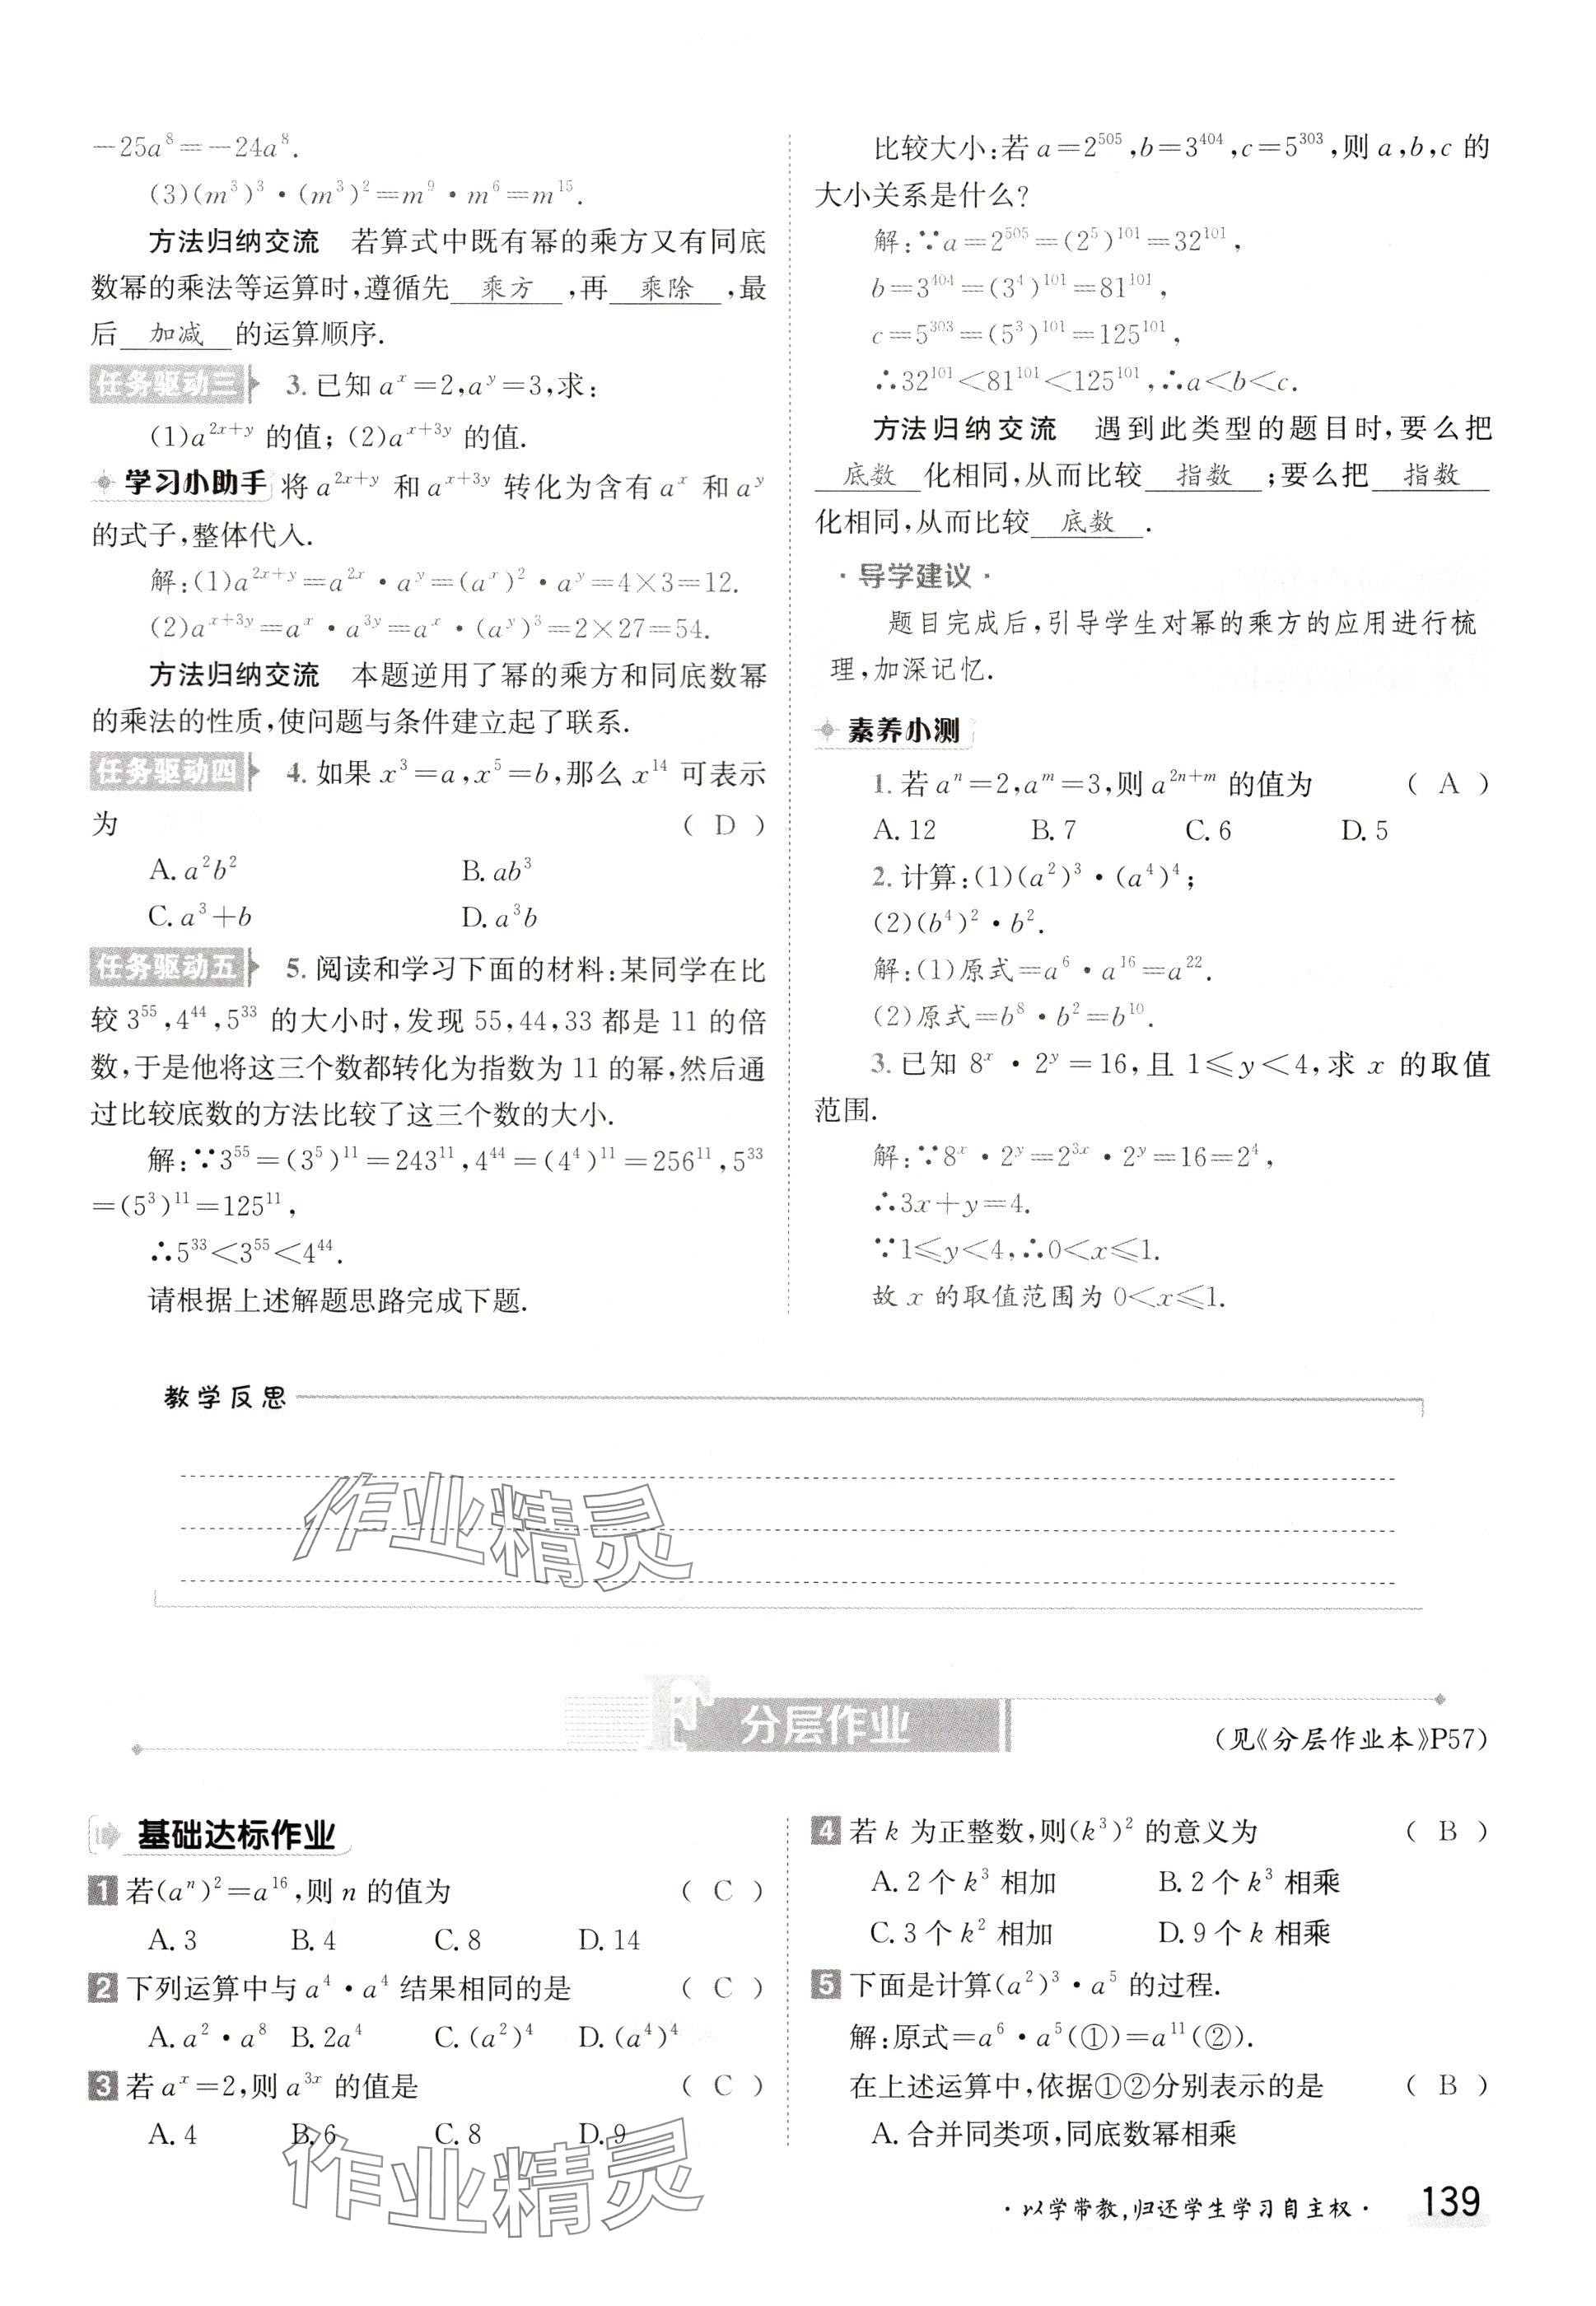 −25a⁸=−24a⁸.
(3)(m³)³·(m³)²=m⁹·m⁶=m¹⁵.
方法归纳交流 若算式中既有幂的乘方又有同底
数幂的乘法等运算时,遵循先 乘方 ,再 乘除 ,最
后 加减 的运算顺序.
任务驱动三 3.已知 aˣ=2,aʸ=3,求:
(1)a²ˣ⁺ʸ 的值;(2)aˣ⁺³ʸ 的值.
学习小助手 将 a²ˣ⁺ʸ 和 aˣ⁺³ʸ 转化为含有 aˣ 和 aʸ
的式子,整体代入.
解:(1)a²ˣ⁺ʸ=a²ˣ·aʸ=(aˣ)²·aʸ=4×3=12.
(2)aˣ⁺³ʸ=aˣ·a³ʸ=aˣ·(aʸ)³=2×27=54.
方法归纳交流 本题逆用了幂的乘方和同底数幂
的乘法的性质,使问题与条件建立起了联系.
任务驱动四 4.如果 x³=a,x⁵=b,那么 x¹⁴ 可表示
为 ( D )
A.a²b² B.ab³
C.a³+b D.a³b
任务驱动五 5.阅读和学习下面的材料:某同学在比
较 3⁵⁵,4⁴⁴,5³³ 的大小时,发现 55,44,33 都是 11 的倍
数,于是他将这三个数都转化为指数为 11 的幂,然后通
过比较底数的方法比较了这三个数的大小.
解:∵3⁵⁵=(3⁵)¹¹=243¹¹,4⁴⁴=(4⁴)¹¹=256¹¹,5³³
=(5³)¹¹=125¹¹,
∴5³³<3⁵⁵<4⁴⁴.
请根据上述解题思路完成下题.
比较大小:若 a=2⁵⁰⁵,b=3⁴⁰⁴,c=5³⁰³,则 a,b,c 的
大小关系是什么?
解:∵a=2⁵⁰⁵=(2⁵)¹⁰¹=32¹⁰¹,
b=3⁴⁰⁴=(3⁴)¹⁰¹=81¹⁰¹,
c=5³⁰³=(5³)¹⁰¹=125¹⁰¹,
∴32¹⁰¹<81¹⁰¹<125¹⁰¹,∴a<b<c.
方法归纳交流 遇到此类型的题目时,要么把
底数 化相同,从而比较 指数 ;要么把 指数
化相同,从而比较 底数 .
·导学建议·
题目完成后,引导学生对幂的乘方的应用进行梳
理,加深记忆.
素养小测
1.若 aⁿ=2,aᵐ=3,则 a²ⁿ⁺ᵐ 的值为 ( A )
A.12 B.7 C.6 D.5
2.计算:(1)(a²)³·(a⁴)⁴;
(2)(b⁴)²·b².
解:(1)原式=a⁶·a¹⁶=a²².
(2)原式=b⁸·b²=b¹⁰.
3.已知 8ˣ·2ʸ=16,且 1⩽y<4,求 x 的取值
范围.
解:∵8ˣ·2ʸ=2³ˣ·2ʸ=16=2⁴,
∴3x+y=4.
∵1⩽y<4,∴0<x⩽1.
故 x 的取值范围为 0<x⩽1.
教学反思
作业精灵
分层作业
(见《分层作业本》P57)
基础达标作业
1 若(aⁿ)²=a¹⁶,则 n 的值为 ( C )
A.3 B.4 C.8 D.14
2 下列运算中与 a⁴·a⁴ 结果相同的是 ( C )
A.a²·a⁸ B.2a⁴ C.(a²)⁴ D.(a⁴)⁴
3 若 aˣ=2,则 a³ˣ 的值是 ( C )
A.4 B.6 C.8 D.9
作业精灵
4 若 k 为正整数,则(k³)² 的意义为 ( B )
A.2 个 k³ 相加 B.2 个 k³ 相乘
C.3 个 k² 相加 D.9 个 k 相乘
5 下面是计算(a²)³·a⁵ 的过程.
解:原式=a⁶·a⁵(①)=a¹¹(②).
在上述运算中,依据①②分别表示的是 ( B )
A.合并同类项,同底数幂相乘
·以学带教,归还学生学习自主权· 139